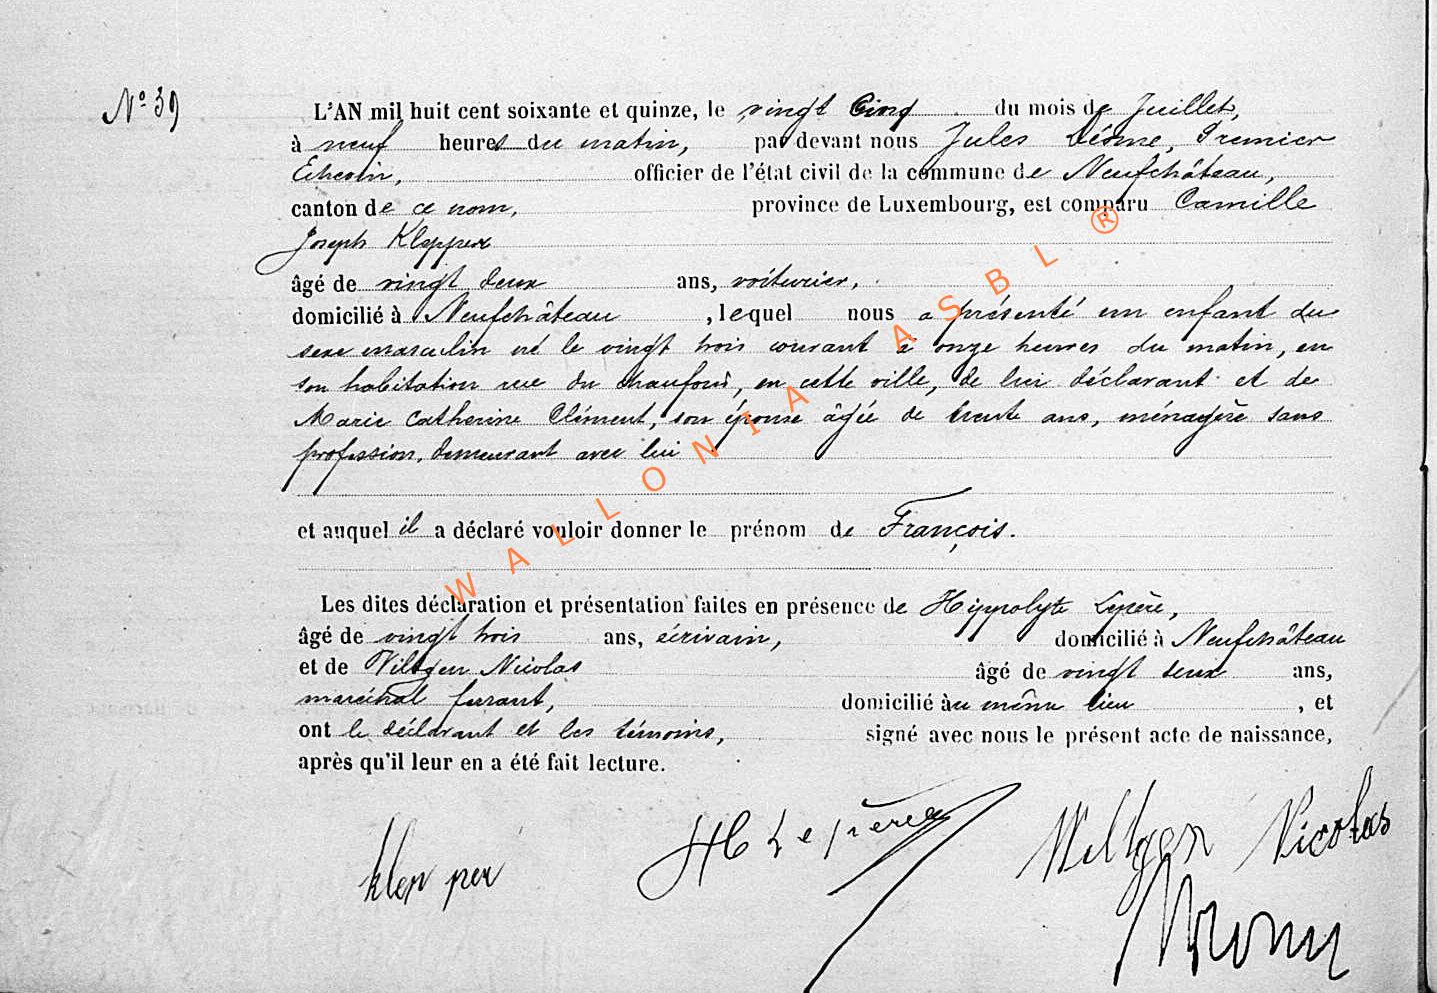 N° 39
L'AN mil huit cent soixante et quinze, le vingt Cinq du mois de Juillet,
à neuf heures du matin, par devant nous Jules Désme, Premier
Echevin, officier de l'état civil de la commune de Neufchâteau,
canton de ce nom, province de Luxembourg, est comparu Camille
Joseph Klepper
âgé de vingt deux ans, voiturier,
domicilié à Neufchâteau, lequel nous a présenté un enfant du
sexe masculin né le vingt trois courant à onze heures du matin, en
son habitation rue du chaufour, en cette ville, de lui déclarant et de
Marie Catherine Clément, son épouse âgée de trente ans, ménagère sans
profession, demeurant avec lui
et auquel il a déclaré vouloir donner le prénom de François.
Les dites déclaration et présentation faites en présence de Hippolyte Lepère,
âgé de vingt trois ans, écrivain, domicilié à Neufchâteau
et de Wiltgen Nicolas âgé de vingt deux ans,
maréchal ferrant, domicilié au même lieu, et
ont le déclarant et les témoins, signé avec nous le présent acte de naissance,
après qu'il leur en a été fait lecture.
klepper H Lepère Wiltgen Nicolas
WALLONIA ASBL ®